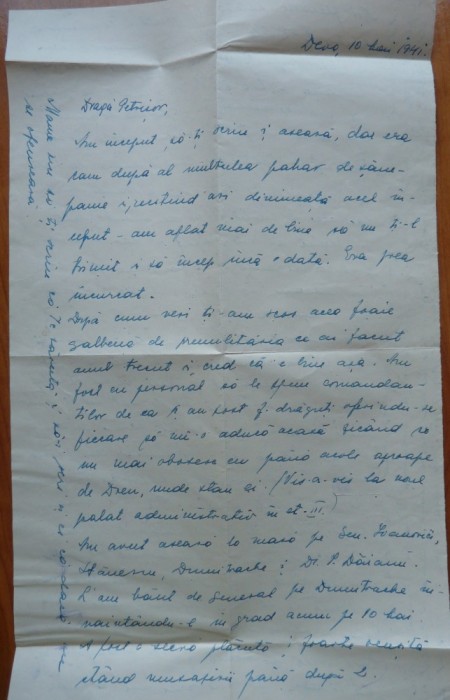 Deva, 10 Mai 1941.
Dragă Petrișor,
Am început să-ți scriu și aseară, dar era
cam după al multulea pahar de șam-
panie și citind azi dimineață acel în-
ceput - am aflat mai de bine să nu ți-l
trimit și să încep încă odată. Era prea
încurcat.
După cum vezi ți-am scos acea foaie
galbenă de premilitărie ce ai făcut
anul trecut și cred că e bine așa. Am
fost eu personal să le spun comandan-
ților de ea și au fost f. drăguți oferindu-se
fiecare să mi-o aducă acasă zicând să
nu mai obosesc eu până acolo aproape
de Dren, unde stau ei. (Vis-a-vis la noul
palat administrativ în et. III.)
Am avut aseară la masă pe Gen.
Stănescu, Dumitrache și Dr. P. Dăianu.
L'am băut de General pe Dumitrache în-
naintându-l in grad acum pe 10 Mai
A fost o seară plăcută și foarte reușită
stând musafirii până după
Mama ține să-ți scriu că te sărută și
se oferează